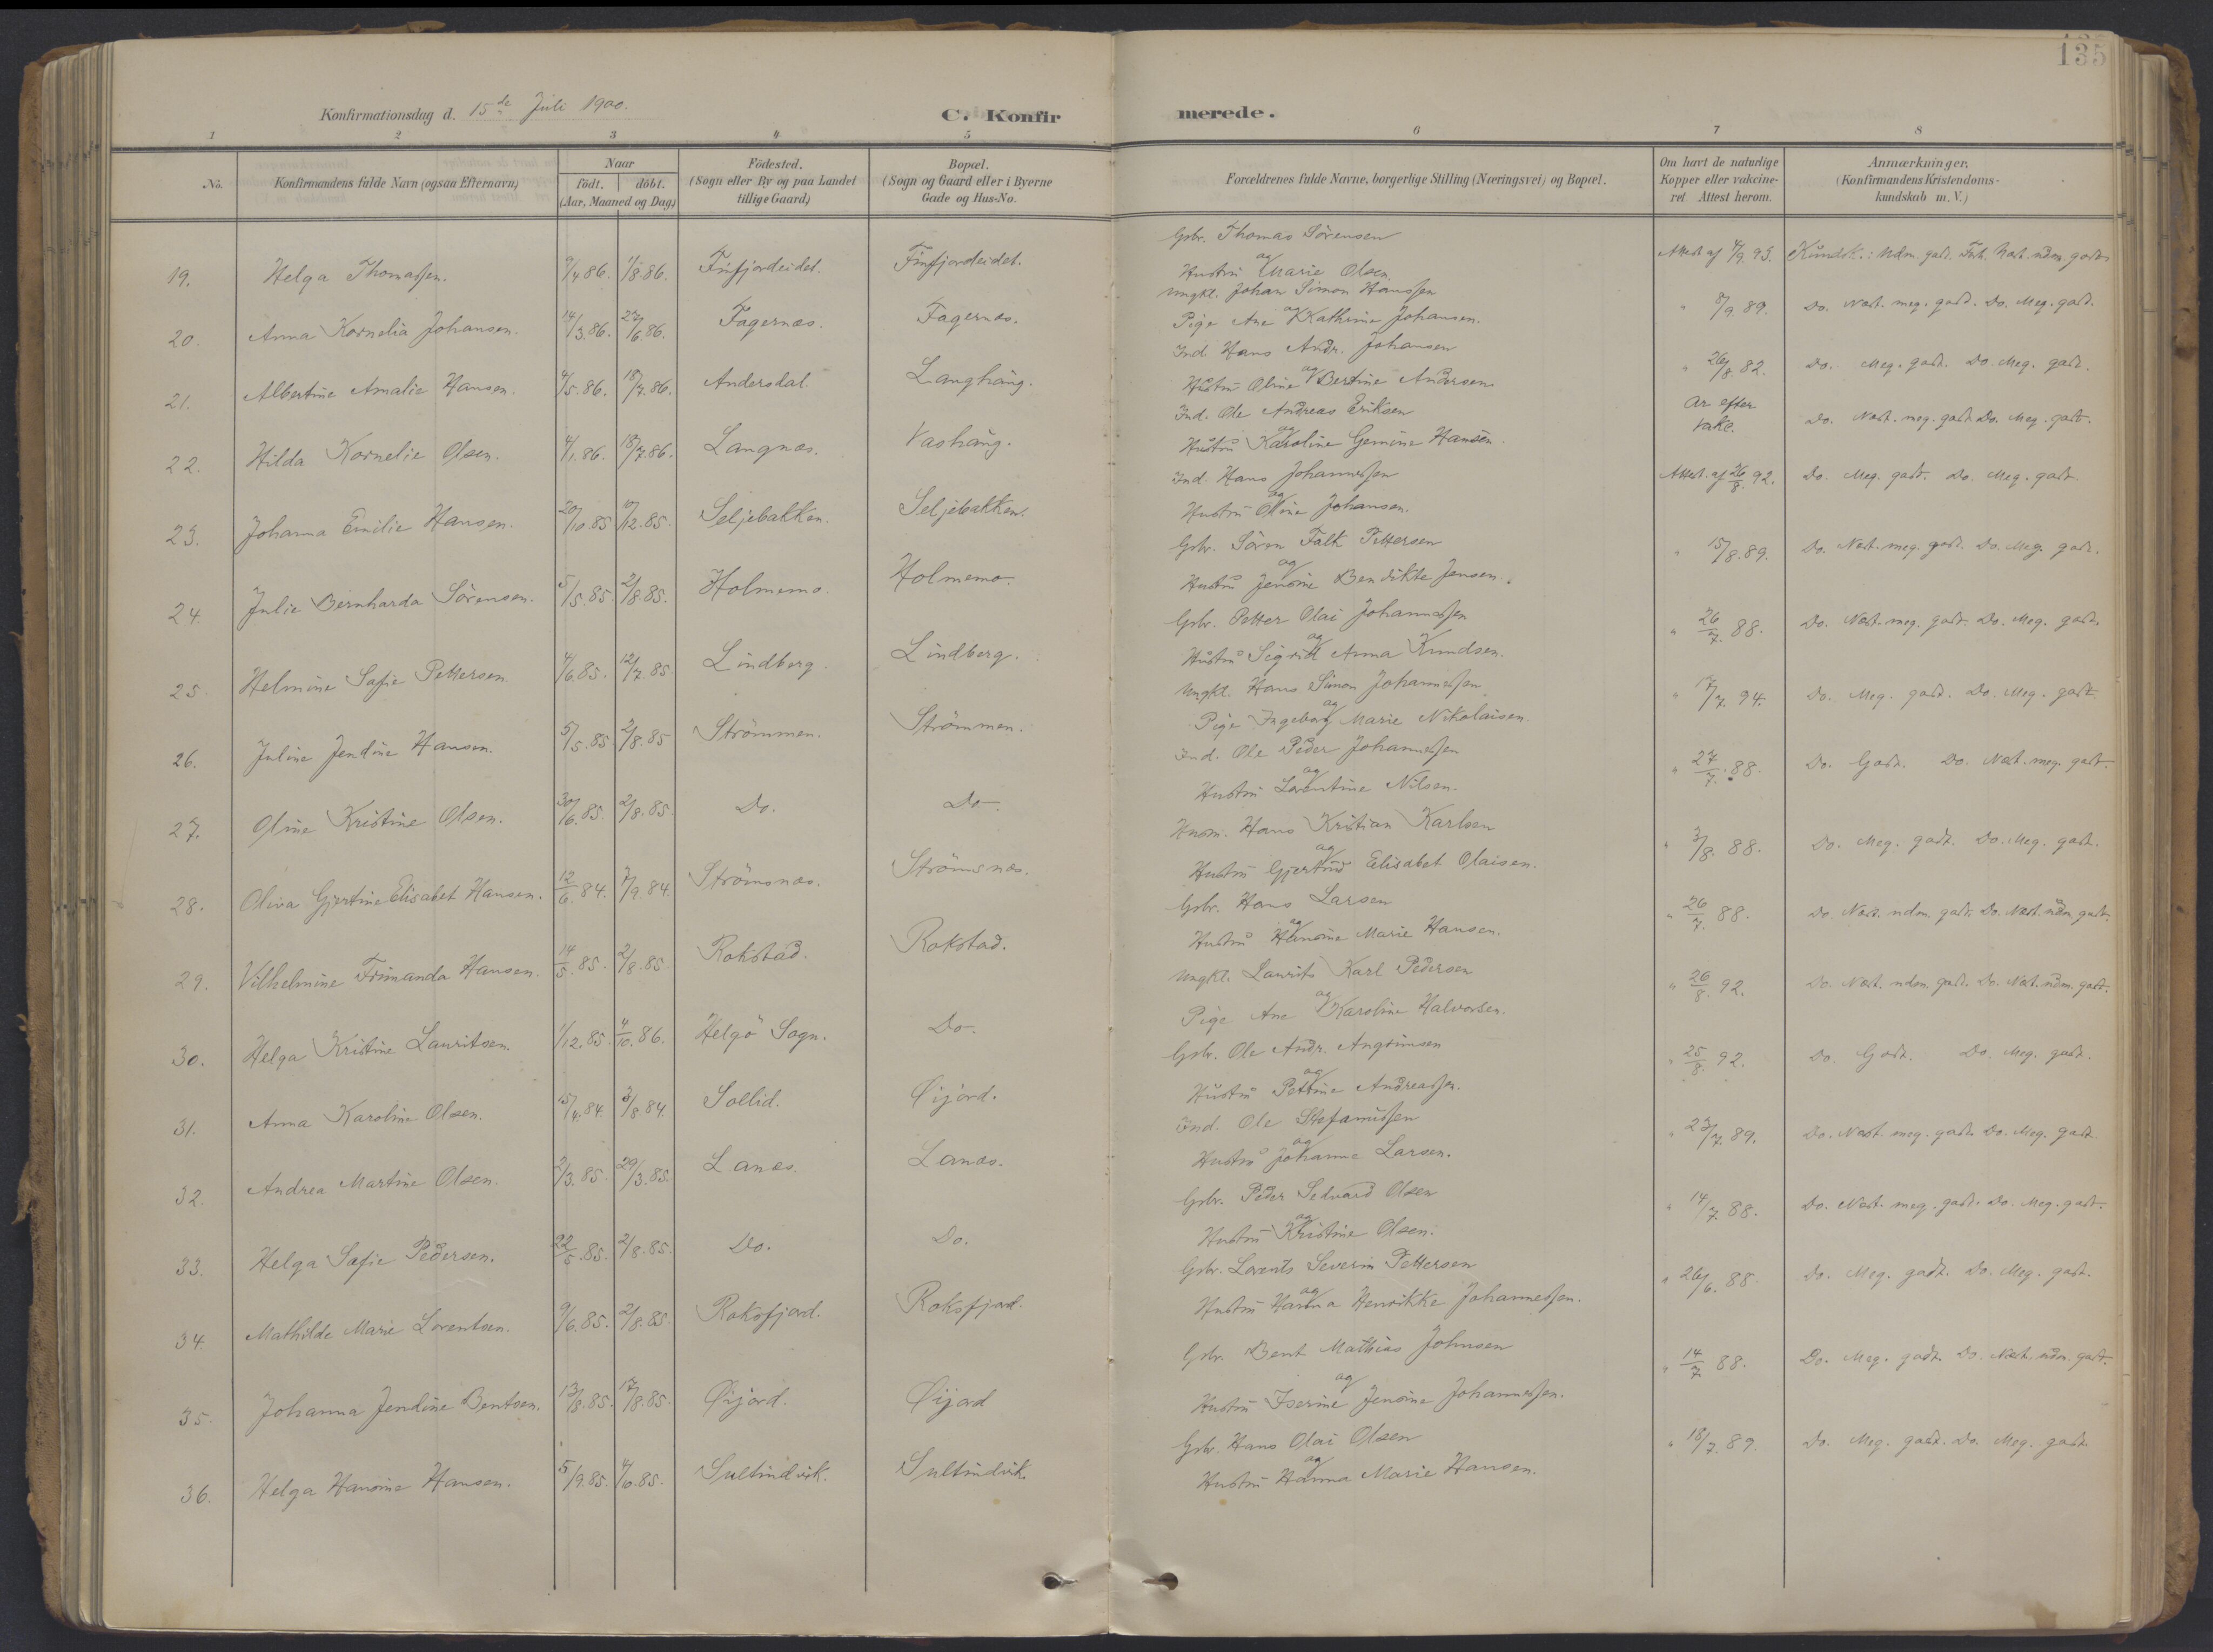 135
Konfirmationsdag d. 15de Juli 1900.
C. Konfirmerede.
1 2 3 4 5 6 7 8
No.
Konfirmandens fulde Navn (ogsaa Efternavn)
Naar
födt. döbt.
(Aar, Maaned og Dag)
Födested.
(Sogn eller By og paa Landet
tillige Gaard)
Bopæl.
(Sogn og Gaard eller i Byerne
Gade og Hus-No.
Forældrenes fulde Navne, borgerlige Stilling (Næringsvei) og Bopæl.
Om havt de naturlige
Kopper eller vakcine-
ret Attest herom.
Anmærkninger.
(Konfirmandens Kristendoms-
kundskab m. V.)
Gbr. Thomas Sörensen
19. Helga Thomassen. 9/4 86. 1/8 86. Finfjordeidet. Finfjordeidet. og Hustru Marie Olsen. Attest af 4/9 93. Kundsk.: Ndm. godt. Flid. Næst. ndm. godt.
Ungkl. Johan Simon Hanssen
20. Anna Kornelia Johansen. 14/3.86. 27/6.86. Fagernæs. Fagernæs. og Pige Ane Kathrine Johansen. " 8/9.89. Do. Næst. meg. godt. Do. Meg. godt.
Ind. Hans Andr. Johansen
21. Albertine Amalie Hansen. 4/5.86. 18/7.86. Andersdal. Langhaug. og Hustru Oline Bertine Andersen. " 26/8.82. Do. Meg. godt. Do. Meg. godt.
Ind. Ole Andreas Eriksen
22. Hilda Kornelie Olsen. 4/1.86. 18/7.86. Langnæs. Vashaug. og Hustru Karoline Gemine Hansen. Ar efter vakc. Do. Næst. meg. godt. Do. Meg. godt.
Ind. Hans Johannessen
23. Johanna Emilie Hansen. 20/10.85 10/12.85. Seljebakken. Seljebakken. og Hustru Oline Johansen. Attest. af 26/8.92. Do. Meg. godt. Do. Meg. godt.
Gbr. Sören Falk Pettersen
24. Julie Bernharda Sörensen. 5/5.85. 2/8.85. Holmemo. Holmemo. og Hustru Jensine Bendikte Jensen. " 15/8.89. Do. Næst. meg. godt. Do. Meg. godt.
Gbr. Petter Olai Johannessen
25. Helmine Sofie Pettersen 4/6.85. 12/7.85. Lindberg. Lindberg. og Hustru Sigrid Anna Knudsen. " 26/7.88. Do. Næst. meg. godt. Do. Meg. godt.
Ungkl. Hans Simon Johannessen
26. Juline Jendine Hansen. 5/5.85 2/8.85 Strömmen. Strömmen. og Pige Ingeborg Marie Nikolaisen. " 17/7.94. Do. Meg. godt. Do. Meg. godt.
Ind. Ole Peder Johannessen
27. Oline Kristine Olsen. 30/6.85. 2/8.85. Do. Do. og Hustru Lorentine Nilsen. " 27/7.88. Do. Godt. Do. Næst. meg. godt.
Husm. Hans Kristian Karlsen
28. Oliva Gjertine Elisabet Hansen. 12/6.84. 7/9.84. Strömsnæs. Strömsnæs. og Hustru Gjertrud Elisabet Olaisen. " 3/8.88. Do. Meg. godt. Do. Meg. godt.
Gbr. Hans Larsen
29. Vilhelmine Frimanda Hansen. 14/5.85. 2/8.85. Rokstad. Rokstad. og Hustru Hansine Marie Hansen. " 26/7.88. Do. Næst. ndm. godt. Do. Næst. ndm. godt.
Ungkl. Laurits Karl Pedersen
30. Helga Kristine Lauritsen. 1/12.85. 4/10.86. Helgö Sogn. Do. og Pige Ane Karoline Halvorsen. " 26/8.92. Do. Næst. ndm. godt. Do. Næst. ndm. godt.
Gbr. Ole Andr. Angrimsen
31. Anna Karoline Olsen. 15/4.84. 3/8.84. Sollid. Öijord. og Hustru Pettrine Andreassen. " 25/8.92. Do. Godt. Do. Meg. godt.
Ind. Ole Stefanussen
32. Andrea Martine Olsen. 2/3.85. 29/3.85. Lanæs. Lanæs. og Hustru Johanne Larsen. " 23/7.89. Do. Næst. meg. godt. Do. Meg. godt.
Gbr. Peder Sedvard Olsen
33. Helga Sofie Pedersen. 22/5.85. 2/8.85. Do. Do. og Hustru Kristine Olsen. " 14/7.88. Do. Næst. meg. godt. Do. Meg. godt.
Gbr. Lorents Severin Pettersen
34. Mathilde Marie Lorentsen. 9/6.85. 2/8.85. Roksfjord. Roksfjord. og Hustru Hanna Henrikke Johannessen. " 26/6.88. Do. Meg. godt. Do. Meg. godt.
Gbr. Bent Mathias Johnsen
35. Johanna Jendine Bentsen. 13/8.85. 17/8.85. Öijord. Öijord og Hustru Iserine Jensine Johannessen. " 14/7 88. Do. Meg. godt. Do. Næst. ndm. godt.
Gbr. Hans Olai Olsen
36. Helga Hansine Hansen. 5/9.85. 4/10.85. Sultindvik. Sultindvik. og Hustru Hanna Marie Hansen. " 18/7.89. Do. Meg. godt. Do. Meg. godt.